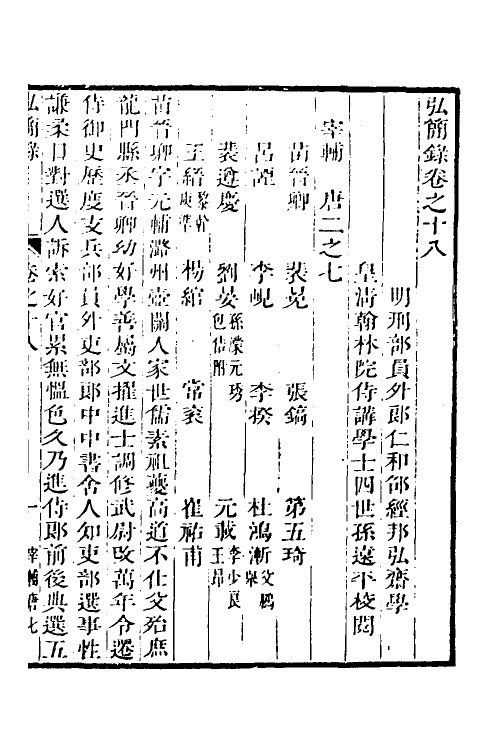 弘簡錄卷之十八
明刑部員外郎仁和邵經邦弘齋學
皇清翰林院侍講學士四世孫遠平校閱
宰輔 唐二之七
苗晉卿 裴冕 張鎬 第五琦
呂諲 李峴 李揆 杜鴻漸
裴遵慶 劉晏 孫濛 元琇 包佶附 元載 李少良 王昂
王縉 黎幹 楊綰 常袞 崔祐甫
苗晉卿字元輔潞州壺關人家世儒素祖夔高道不仕父殆庶
龍門縣丞晉卿幼好學善屬文擢進士調修武尉改萬年令遷
侍御史歷度支兵部員外吏部郎中中書舍人知吏部選事性
謙柔日對選人訴索好官累無慍色久乃進侍郎前後典選五
弘簡錄 卷之十八 一 宰輔唐七